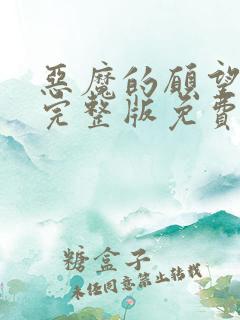 惡魔的願望
完整版免費
糖盒子
未经同意禁止转载